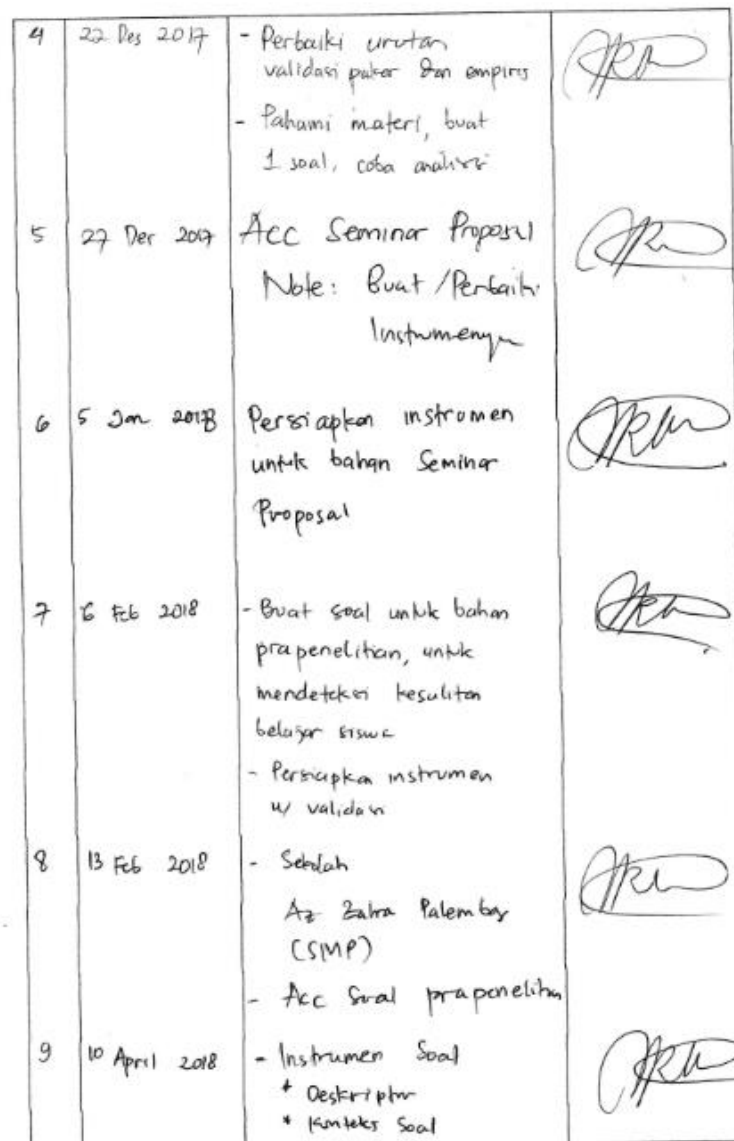 4 22 Des 2017 - Perbaiki urutan
validasi pakar dan empiris
- Pahami materi, buat
1 soal, coba analisis
5 27 Des 2017 Acc Seminar Proposal
Note: Buat / Perbaiki
Instrumennya
6 5 Jan 2018 Persiapkan instrumen
untuk bahan Seminar
Proposal
7 6 Feb 2018 - Buat soal untuk bahan
prapenelitian, untuk
mendeteksi kesulitan
belajar siswa
- Persiapkan instrumen
u/ validasi
8 13 Feb 2018 - Sekolah
Az Zahra Palembang
(SMP)
- Acc Soal prapenelitian
9 10 April 2018 - Instrumen Soal
* Deskriptor
* Konteks Soal